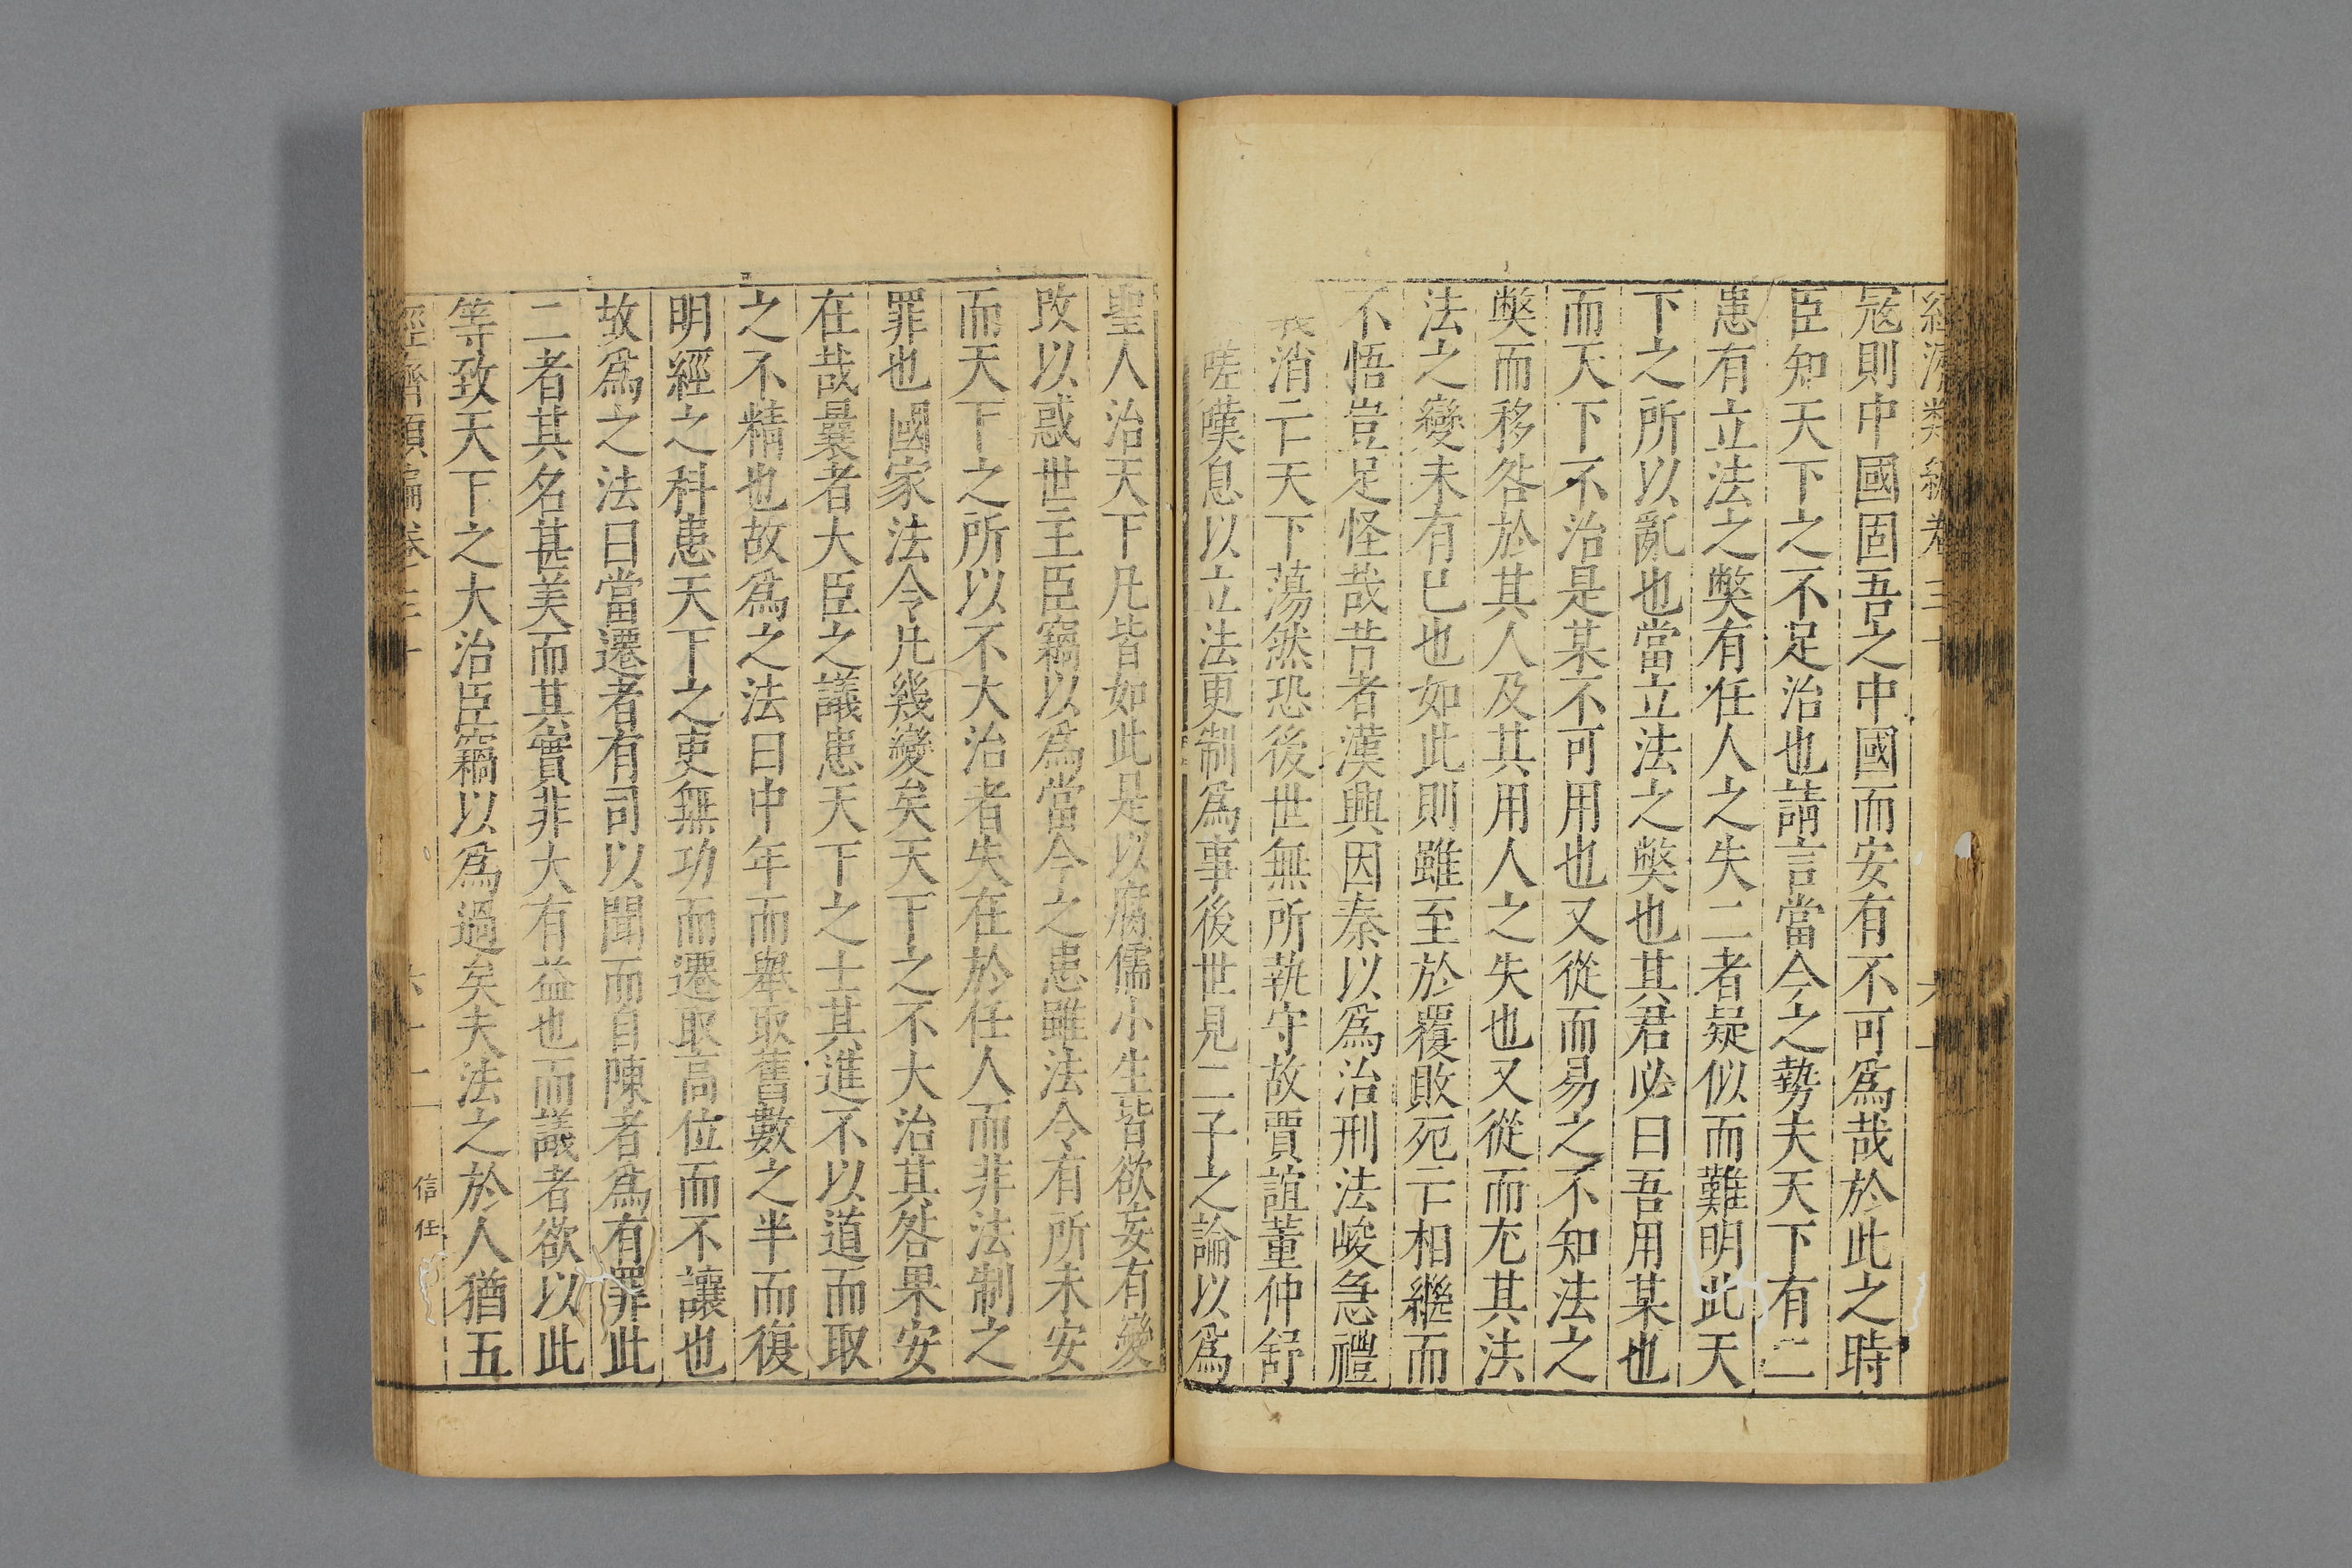 寇則中國固吾之中國而安有不可爲哉於此之時
臣知天下之不足治也請言當今之勢夫天下有二
患有立法之弊有任人之失二者疑似而難明此天
下之所以亂也當立法之弊也其君必曰吾用某也
而天下不治是某不可用也又從而易之不知法之
弊而移咎於其人及其用人之失也又從而尤其法
法之變未有已也如此則雖至於覆敗死亡相繼而
不悟豈足怪哉昔者漢興因秦以爲治刑法峻急禮
義消亡天下蕩然恐後世無所執守故賈誼董仲舒
嗟嘆息以立法更制爲事後世見二子之論以爲
聖人治天下凡皆如此是以腐儒小生皆欲妄有變
改以惑世主臣竊以爲當今之患雖法令有所未安
而天下之所以不大治者失在於任人而非法制之
罪也國家法令凡幾變矣天下之不大治其咎果安
在哉曩者大臣之議患天下之士其進不以道而取
之不精也故爲之法曰中年而舉取舊數之半而復
明經之科患天下之吏無功而遷取高位而不讓也
故爲之法曰當遷者有司以聞而自陳者爲有罪此
二者其名甚美而其實非大有益也而議者欲以此
等致天下之大治臣竊以爲過矣夫法之於人猶五
信任